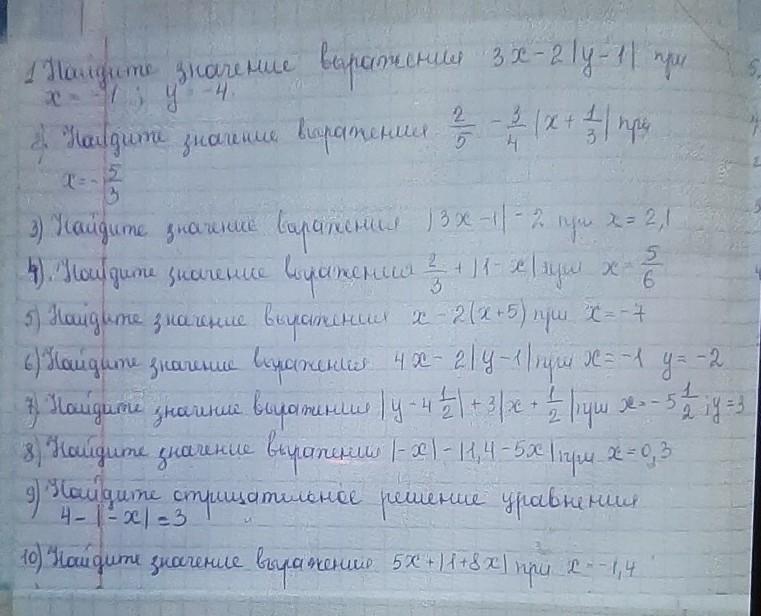 1 Найдите значение выражения 3x - 2|y - 1| при
x = -1 ; y = -4.
2) Найдите значение выражения 2/5 - 3/4 |x + 1/3| при
x = - 5/3
3) Найдите значение выражения |3x - 1| - 2 при x = 2,1
4). Найдите значение выражения 2/3 + |1 - x| при x = 5/6
5) Найдите значение выражения x - 2(x+5) при x = -7
6) Найдите значение выражения 4x - 2|y - 1| при x = -1 y = -2
7) Найдите значение выражения |y - 4 1/2| + 3|x + 1/2| при x = -5 1/2 ; y = 3
8) Найдите значение выражения |-x| - |1,4 - 5x| при x = 0,3
9) Найдите отрицательное решение уравнения
4 - |-x| = 3
10) Найдите значение выражения 5x + |1 + 8x| при x = -1,4